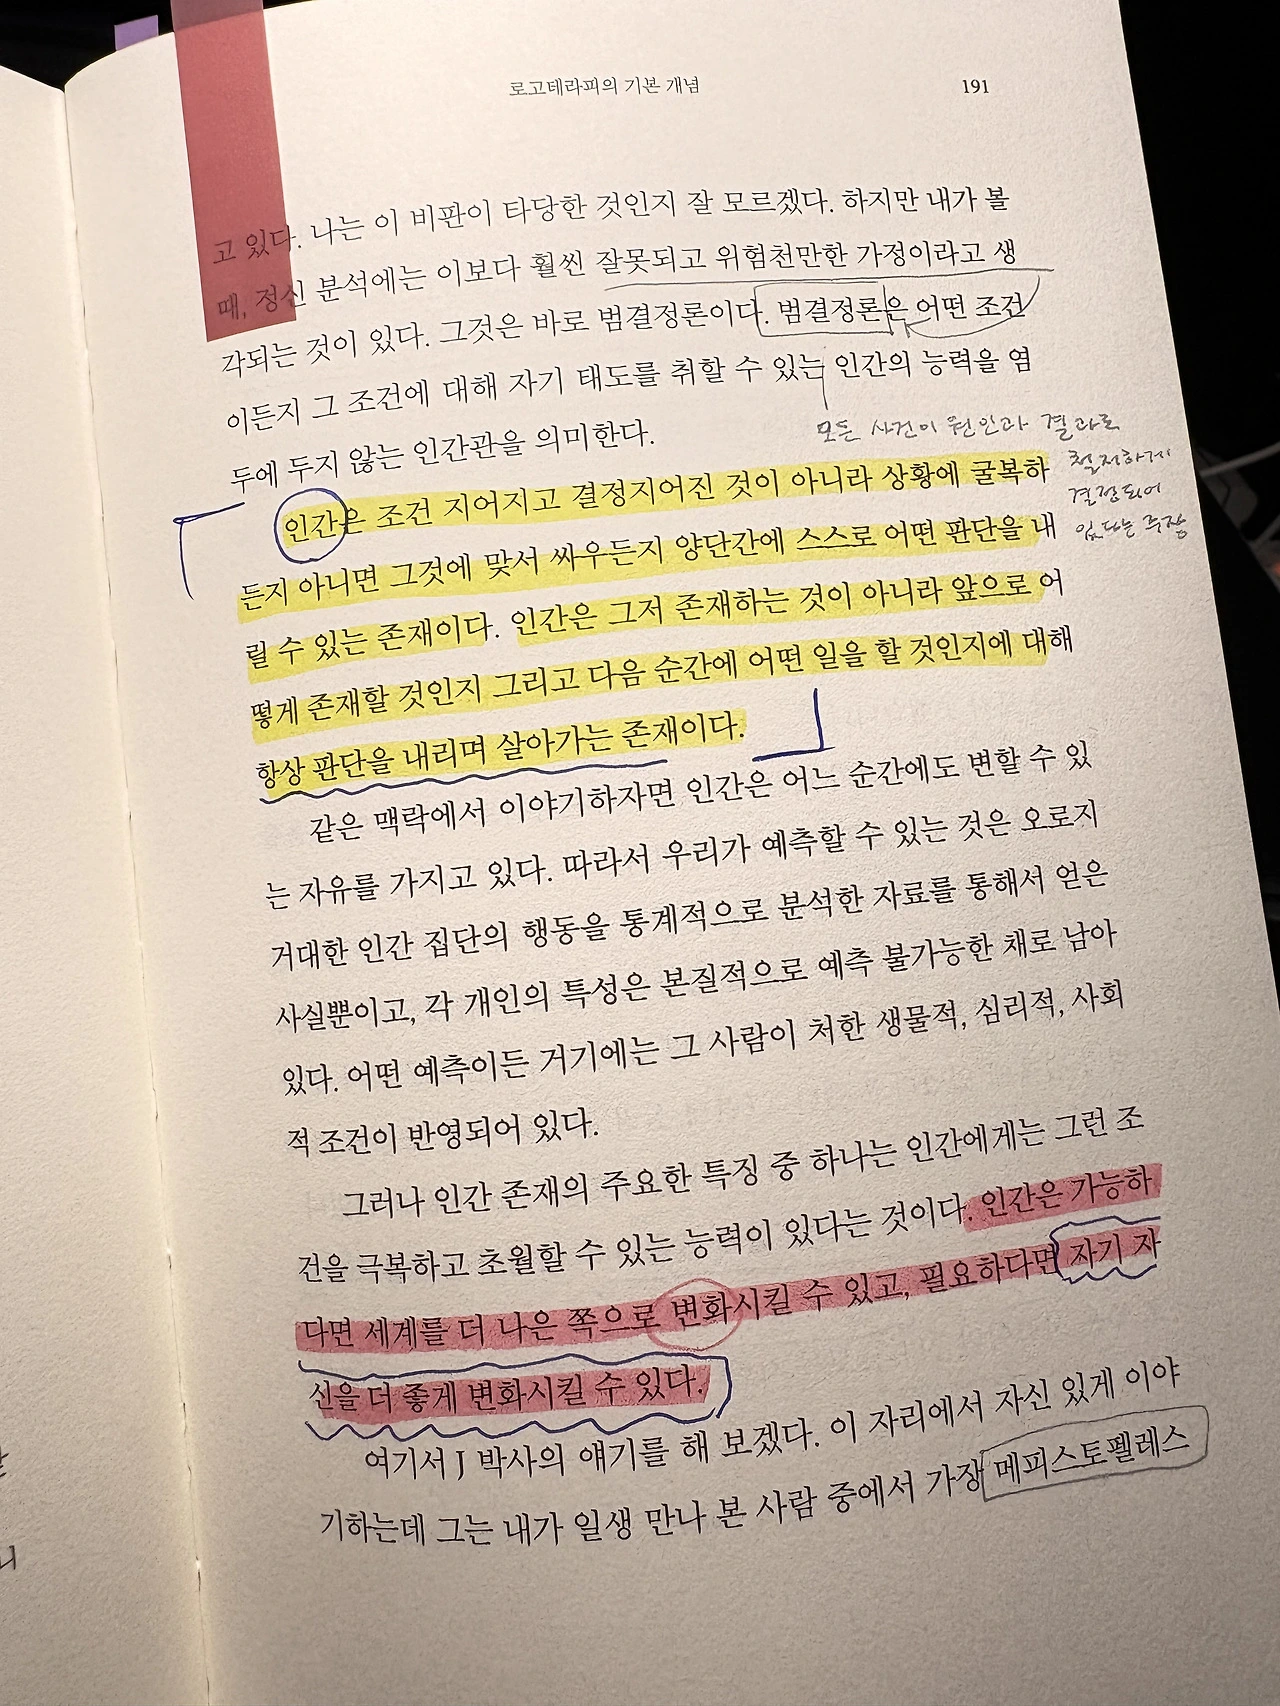 로고테라피의 기본 개념 191
고 있다. 나는 이 비판이 타당한 것인지 잘 모르겠다. 하지만 내가 볼
때, 정신 분석에는 이보다 훨씬 잘못되고 위험천만한 가정이라고 생
각되는 것이 있다. 그것은 바로 범결정론이다. 범결정론은 어떤 조건
이든지 그 조건에 대해 자기 태도를 취할 수 있는 인간의 능력을 염
두에 두지 않는 인간관을 의미한다.
모든 사건이 원인과 결과로
철저하게
결정되어
있다는 주장
인간은 조건 지어지고 결정지어진 것이 아니라 상황에 굴복하
든지 아니면 그것에 맞서 싸우든지 양단간에 스스로 어떤 판단을 내
릴 수 있는 존재이다. 인간은 그저 존재하는 것이 아니라 앞으로 어
떻게 존재할 것인지 그리고 다음 순간에 어떤 일을 할 것인지에 대해
항상 판단을 내리며 살아가는 존재이다.
같은 맥락에서 이야기하자면 인간은 어느 순간에도 변할 수 있
는 자유를 가지고 있다. 따라서 우리가 예측할 수 있는 것은 오로지
거대한 인간 집단의 행동을 통계적으로 분석한 자료를 통해서 얻은
사실뿐이고, 각 개인의 특성은 본질적으로 예측 불가능한 채로 남아
있다. 어떤 예측이든 거기에는 그 사람이 처한 생물적, 심리적, 사회
적 조건이 반영되어 있다.
그러나 인간 존재의 주요한 특징 중 하나는 인간에게는 그런 조
건을 극복하고 초월할 수 있는 능력이 있다는 것이다. 인간은 가능하
다면 세계를 더 나은 쪽으로 변화시킬 수 있고, 필요하다면 자기 자
신을 더 좋게 변화시킬 수 있다.
여기서 J 박사의 얘기를 해 보겠다. 이 자리에서 자신 있게 이야
기하는데 그는 내가 일생 만나 본 사람 중에서 가장 메피스토펠레스